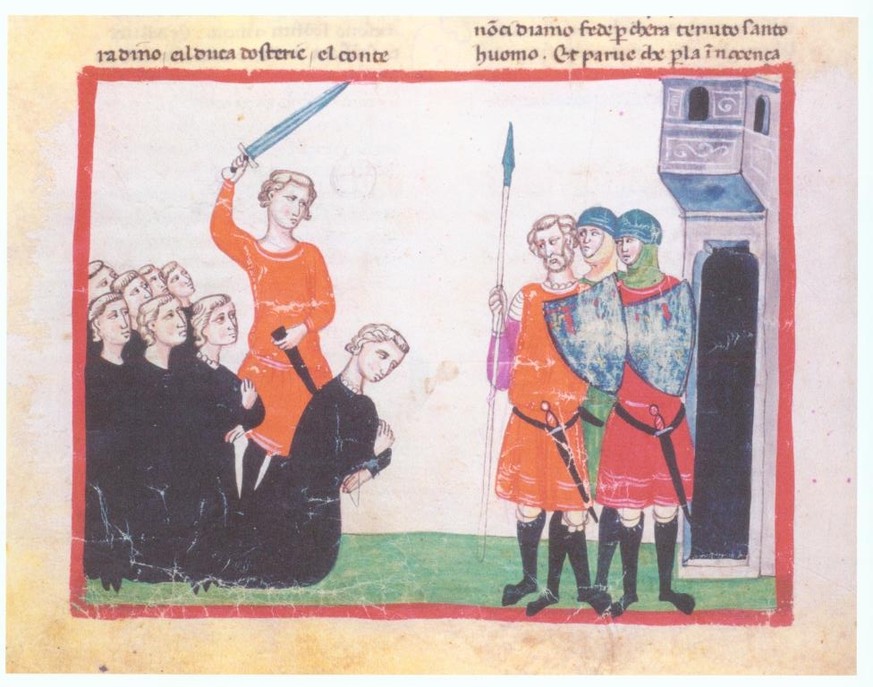 radino, eil duca dosteric, el conte
nōci diamo fede p chera tenuto santo
huomo. Et parue che p la īnocenca